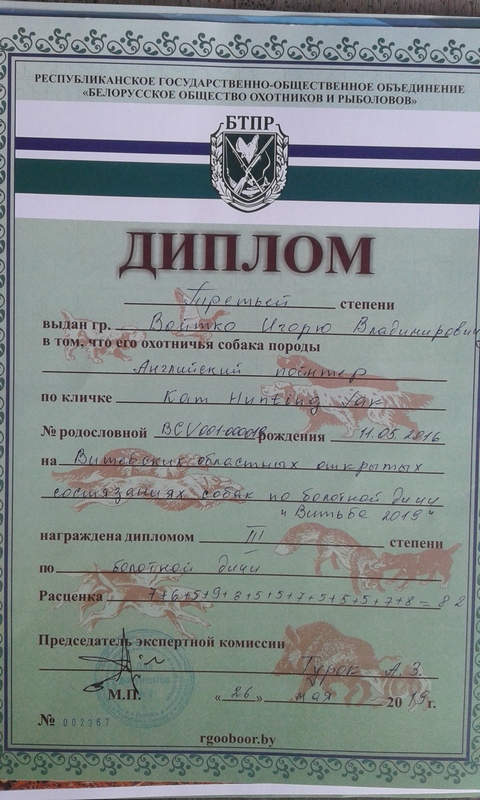 РЕСПУБЛИКАНСКОЕ ГОСУДАРСТВЕННО-ОБЩЕСТВЕННОЕ ОБЪЕДИНЕНИЕ
«БЕЛОРУССКОЕ ОБЩЕСТВО ОХОТНИКОВ И РЫБОЛОВОВ»
БТПР
ДИПЛОМ
Третьей степени
выдан гр. Войтко Игорю Владимирович
в том, что его охотничья собака породы
Английский пойнтер
по кличке Kam Hunting
№ родословной рождения 11.05.2016
на Витебских областных открытых
состязаниях собак по болотной дичи
"Витьба 2019"
награждена дипломом III степени
по болотной дичи
Расценка 7+6+5+9+8+5+5+7+5+5+5+7+8=82
Председатель экспертной комиссии
Турок А.З.
М.П. «26» мая 2019 г.
№ 002367
rgooboor.by